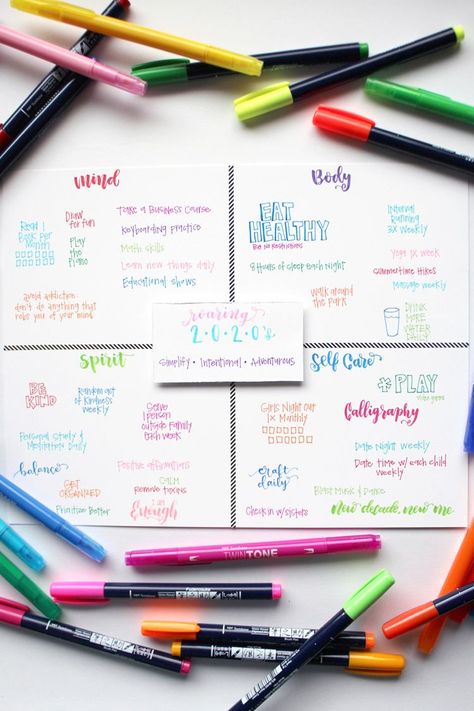 mind
Read 1
Book per
Month
Draw
for fun
Play
the
Piano
Take a Business Course
Keyboarding practice
Math skills
Learn new things daily
Educational shows
avoid addiction
don't do anything that
robs you of your mind
Body
EAT
HEALTHY
8 Hours of sleep Each Night
Walk around
the Park
Interval
Running
3x Weekly
Yoga 1x week
Summertime Hikes
Massage weekly
DRINK
MORE
WATER
DAILY
roaring
2.0.2.0's
Simplify • Intentional • Adventurous
Spirit
BE
KIND
Random act
of Kindness
weekly
Serve
1 person
outside Family
Each week
Personal Study &
Meditation Daily
balance
GET
ORGANIZED
Prioritize Better
Positive affirmations
CALM
Remove toxins
I am
Enough
Self Care
*PLAY
video games
Girls Night Out
1x Monthly
Calligraphy
Date Night weekly
Date time w/ each child
weekly
craft
daily
Blast Music & Dance
Check in w/ sisters
New decade, new me
TWINTONE